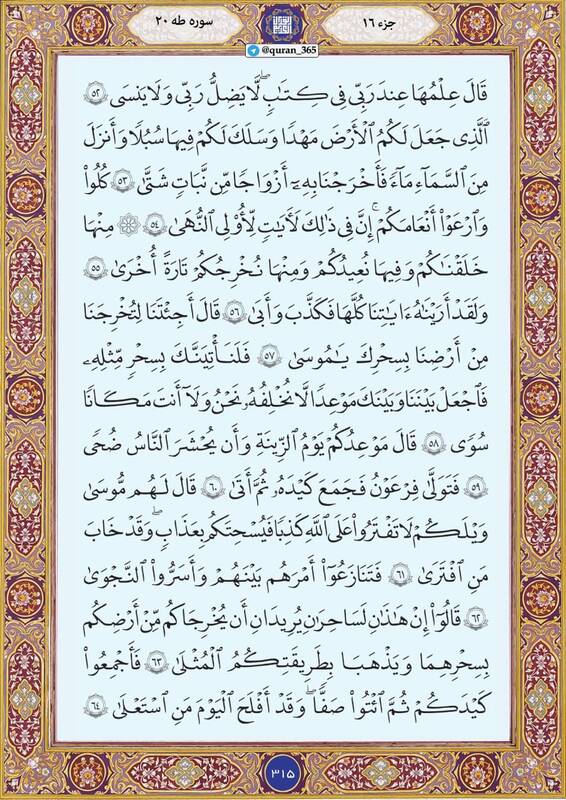 جزء ١٦
سوره طه ٢٠
@quran_365
قَالَ عِلْمُهَا عِندَ رَبِّي فِي كِتَٰبٍۖ لَّا يَضِلُّ رَبِّي وَلَا يَنسَى ٥٢
ٱلَّذِي جَعَلَ لَكُمُ ٱلْأَرْضَ مَهْدًا وَسَلَكَ لَكُمْ فِيهَا سُبُلًا وَأَنزَلَ
مِنَ ٱلسَّمَآءِ مَآءً فَأَخْرَجْنَا بِهِۦٓ أَزْوَٰجًا مِّن نَّبَاتٍ شَتَّىٰ ٥٣ كُلُوا۟
وَٱرْعَوْا۟ أَنْعَٰمَكُمْۗ إِنَّ فِي ذَٰلِكَ لَأٓيَٰتٍ لِّأُو۟لِي ٱلنُّهَىٰ ٥٤ ۞ مِنْهَا
خَلَقْنَٰكُمْ وَفِيهَا نُعِيدُكُمْ وَمِنْهَا نُخْرِجُكُمْ تَارَةً أُخْرَىٰ ٥٥
وَلَقَدْ أَرَيْنَٰهُ ءَايَٰتِنَا كُلَّهَا فَكَذَّبَ وَأَبَىٰ ٥٦ قَالَ أَجِئْتَنَا لِتُخْرِجَنَا
مِنْ أَرْضِنَا بِسِحْرِكَ يَٰمُوسَىٰ ٥٧ فَلَنَأْتِيَنَّكَ بِسِحْرٍ مِّثْلِهِۦ
فَٱجْعَلْ بَيْنَنَا وَبَيْنَكَ مَوْعِدًا لَّا نُخْلِفُهُۥ نَحْنُ وَلَآ أَنتَ مَكَانًا
سُوًى ٥٨ قَالَ مَوْعِدُكُمْ يَوْمُ ٱلزِّينَةِ وَأَن يُحْشَرَ ٱلنَّاسُ ضُحًى
٥٩ فَتَوَلَّىٰ فِرْعَوْنُ فَجَمَعَ كَيْدَهُۥ ثُمَّ أَتَىٰ ٦٠ قَالَ لَهُم مُّوسَىٰ
وَيْلَكُمْ لَا تَفْتَرُوا۟ عَلَى ٱللَّهِ كَذِبًا فَيُسْحِتَكُم بِعَذَابٍۖ وَقَدْ خَابَ
مَنِ ٱفْتَرَىٰ ٦١ فَتَنَٰزَعُوٓا۟ أَمْرَهُم بَيْنَهُمْ وَأَسَرُّوا۟ ٱلنَّجْوَىٰ
٦٢ قَالُوٓا۟ إِنْ هَٰذَٰنِ لَسَٰحِرَٰنِ يُرِيدَانِ أَن يُخْرِجَاكُم مِّنْ أَرْضِكُم
بِسِحْرِهِمَا وَيَذْهَبَا بِطَرِيقَتِكُمُ ٱلْمُثْلَىٰ ٦٣ فَأَجْمِعُوا۟
كَيْدَكُمْ ثُمَّ ٱئْتُوا۟ صَفًّاۚ وَقَدْ أَفْلَحَ ٱلْيَوْمَ مَنِ ٱسْتَعْلَىٰ ٦٤
٣١٥